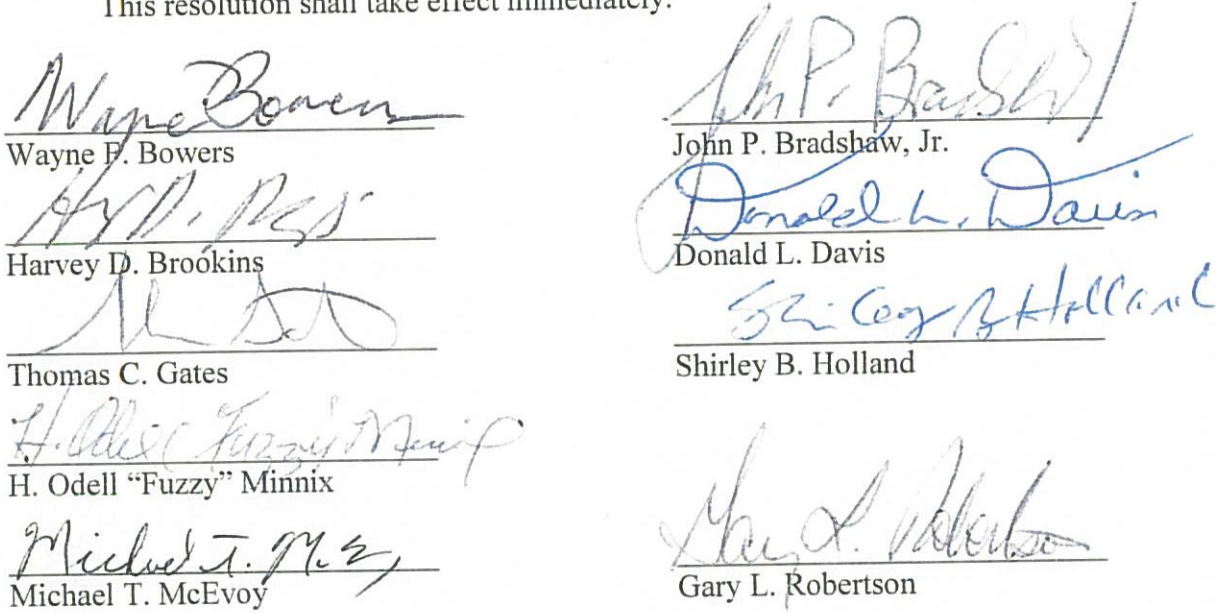 This resolution shall take effect immediately.
Wayne Bowers
Wayne F. Bowers
Harvey D. Brookins
Thomas C. Gates
H. Odell "Fuzzy" Minnix
H. Odell “Fuzzy” Minnix
Michael T. McEvoy
Michael T. McEvoy
John P. Bradshaw Jr
John P. Bradshaw, Jr.
Donald L. Davis
Donald L. Davis
Shirley B Holland
Shirley B. Holland
Gary L. Robertson
Gary L. Robertson